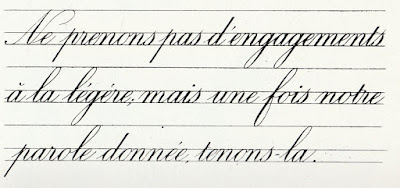 Ne prenons pas d'engagements
à la légére; mais une fois notre
parole donnée, tenons-la.